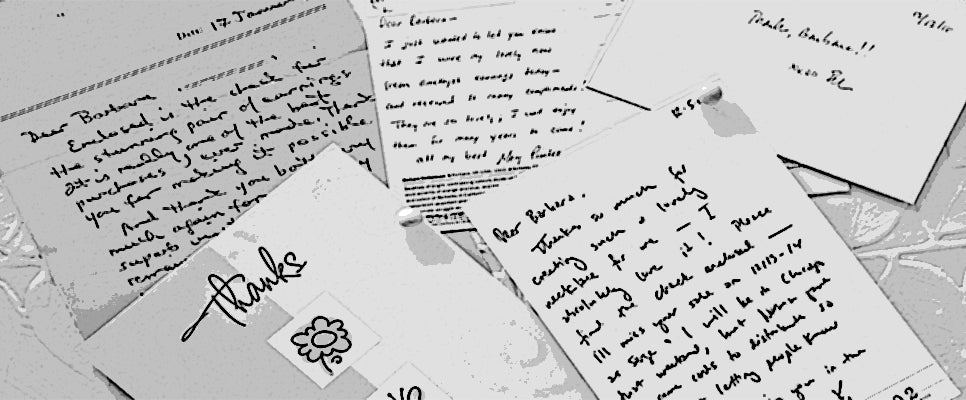 Date: 17 Januar
Dear Barbara
Enclosed is the check for
the stunning pair of earrings
It is really one of the best
purchases I ever made. Thank
you for making it possible.
And thank you both very
much again for
superb
remar
Dear Barbara—
I just wanted to let you know
that I wore my lovely new
green amethyst earrings today—
and received so many compliments!
They are so lovely, I will enjoy
them for many years to come!
all my best
Thanks, Barbara!!
Thanks
Dear Barbara,
Thanks so much for
creating such a lovely
necklace for me — I
absolutely love it! Please
find the check enclosed —
I'll miss your sale on 12/13-14
I will be in Chicago
that weekend, but please give
me some cards to distribute so
letting people know
you in the